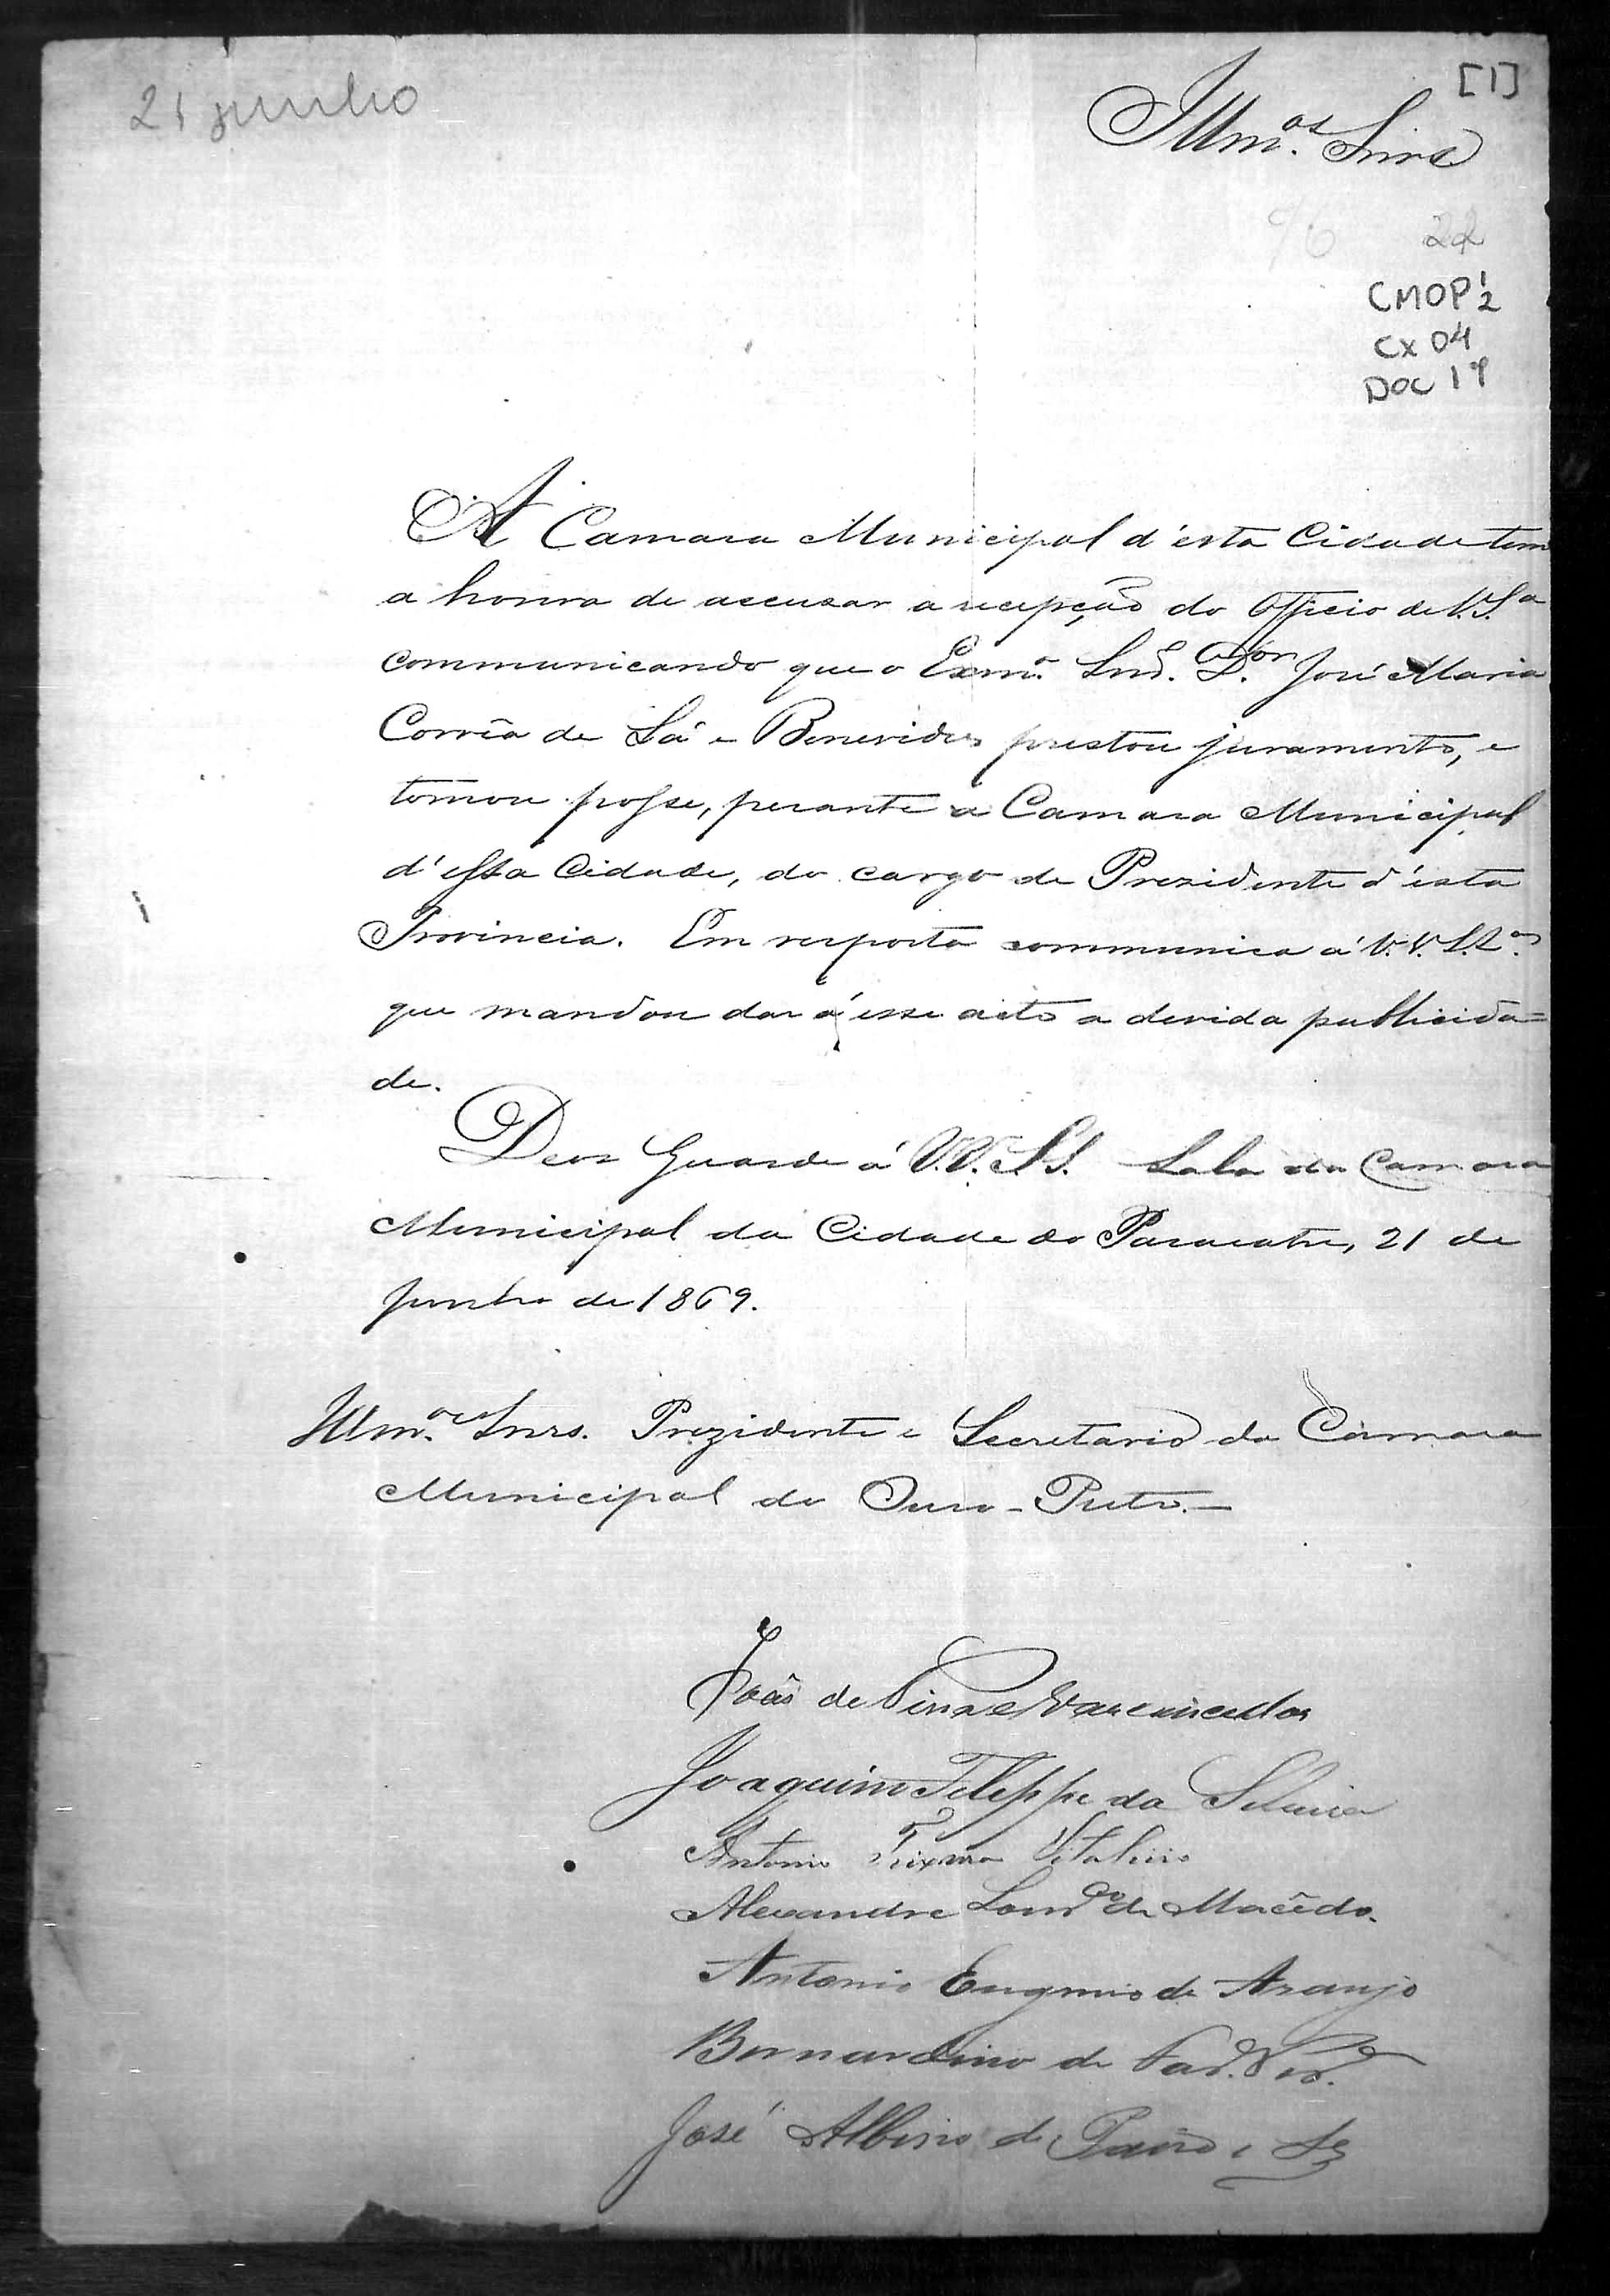 21 junho
[1]
Illm.os Snrs
96 22
CMOP 1/2
CX 04
DOC 19
A Camara Municipal d'esta Cidade tem
a honra de accusar a recepção do Officio de V.S.a
communicando que o Exm.o Snr. D.or José Maria
Corrêa de Sá e Benevides prestou juramento, e
tomou posse, perante a Camara Municipal
d'essa Cidade, do cargo de Prezidente d'esta
Provincia. Em resposta communica á V.V. S.S.as
que mandou dar á esse acto a devida publicida=
de.
Deos Guarde á V.V. S.S. Sala da Camara
Municipal da Cidade do Paracatu, 21 de
Junho de 1869.
Illm.os Snrs. Prezidente e Secretario da Camara
Municipal do Ouro-Preto.—
João de Pina e Vasconcellos
Joaquim Felippe da Silveira
Antonio Teixeira
Alexandre de Macêdo.
Antonio Eugenio de Araujo
Bernardino de
José Albino de